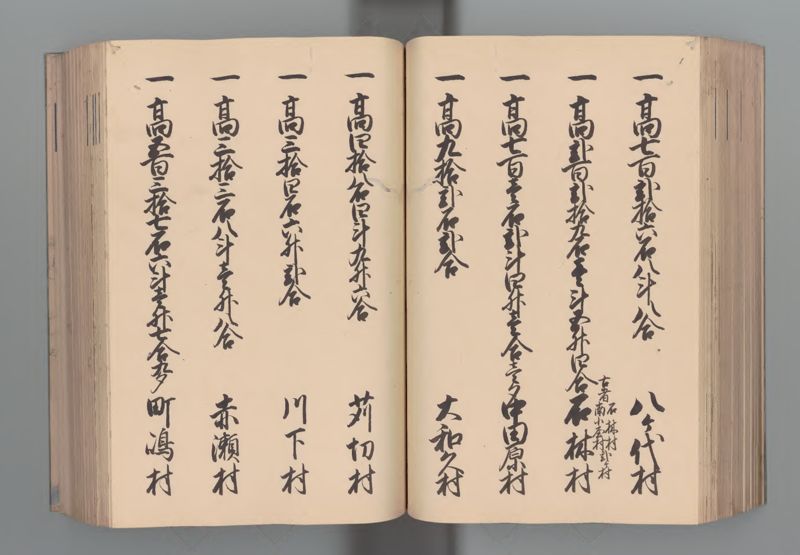 一 高七百弐拾六石八斗八合 八ケ代村
一 高弐百弐拾九石壱斗五升四合 石林村
古者石林村
南小屋村弐ヶ村
一 高七百壱石弐斗四升壱合壱夕 中田原村
一 高九拾弐石弐合 大和久村
一 高四拾八石四斗九升六合 苅切村
一 高三拾四石六升弐合 川下村
一 高三拾三石八斗壱升八合 赤瀬村
一 高五百三拾七石六斗壱升七合九夕 町嶋村